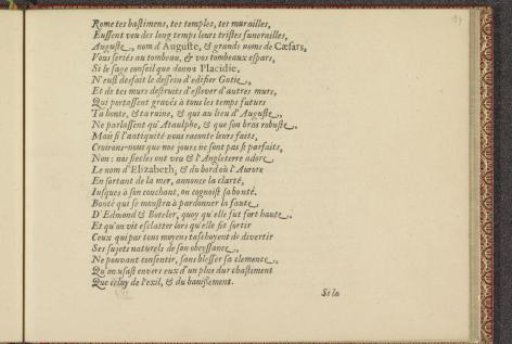 Rome tes bastimens, tes temples, tes murailles,
Eussent veu des long temps leurs tristes funerailles,
Auguste, nom d'Auguste, & grands noms de Cæsars,
Vous seriés au tombeau, & vos tombeaux espars,
Si le sage conseil que donna Placidie,
N'eust desfait le dessein d'edifier Gotie,
Et de tes murs destruits d'eslever d'autres murs,
Qui portassent gravés à tous les temps futurs
Ta honte, & ta ruine, & qui au lieu d'Auguste,
Ne parlassent qu'Ataulphe, & que son bras robuste.
Mais si l'antiquité nous raconte leurs faits,
Croirons-nous que nos jours ne sont pas si parfaits,
Non: nos siecles ont veu & l'Angleterre adore
Le nom d'Elizabeth, & du bord où l'Aurore
En sortant de la mer, annonce la clarté,
Jusques à son couchant, on cognoist sa bonté.
Bonté qui se monstra à pardonner la faute,
D'Edmond & Boteler, quoy qu'elle fut fort haute,
Et qu'on vit esclatter lors qu'elle fit sortir
Ceux qui par tous moyens taschoyent de divertir
Ses sujets naturels de son obeyssance,
Ne pouvant consentir, sans blesser sa clemence,
Qu'on usast envers eux d'un plus dur chastiment
Que celuy de l'exil, & du banissement.
Si la